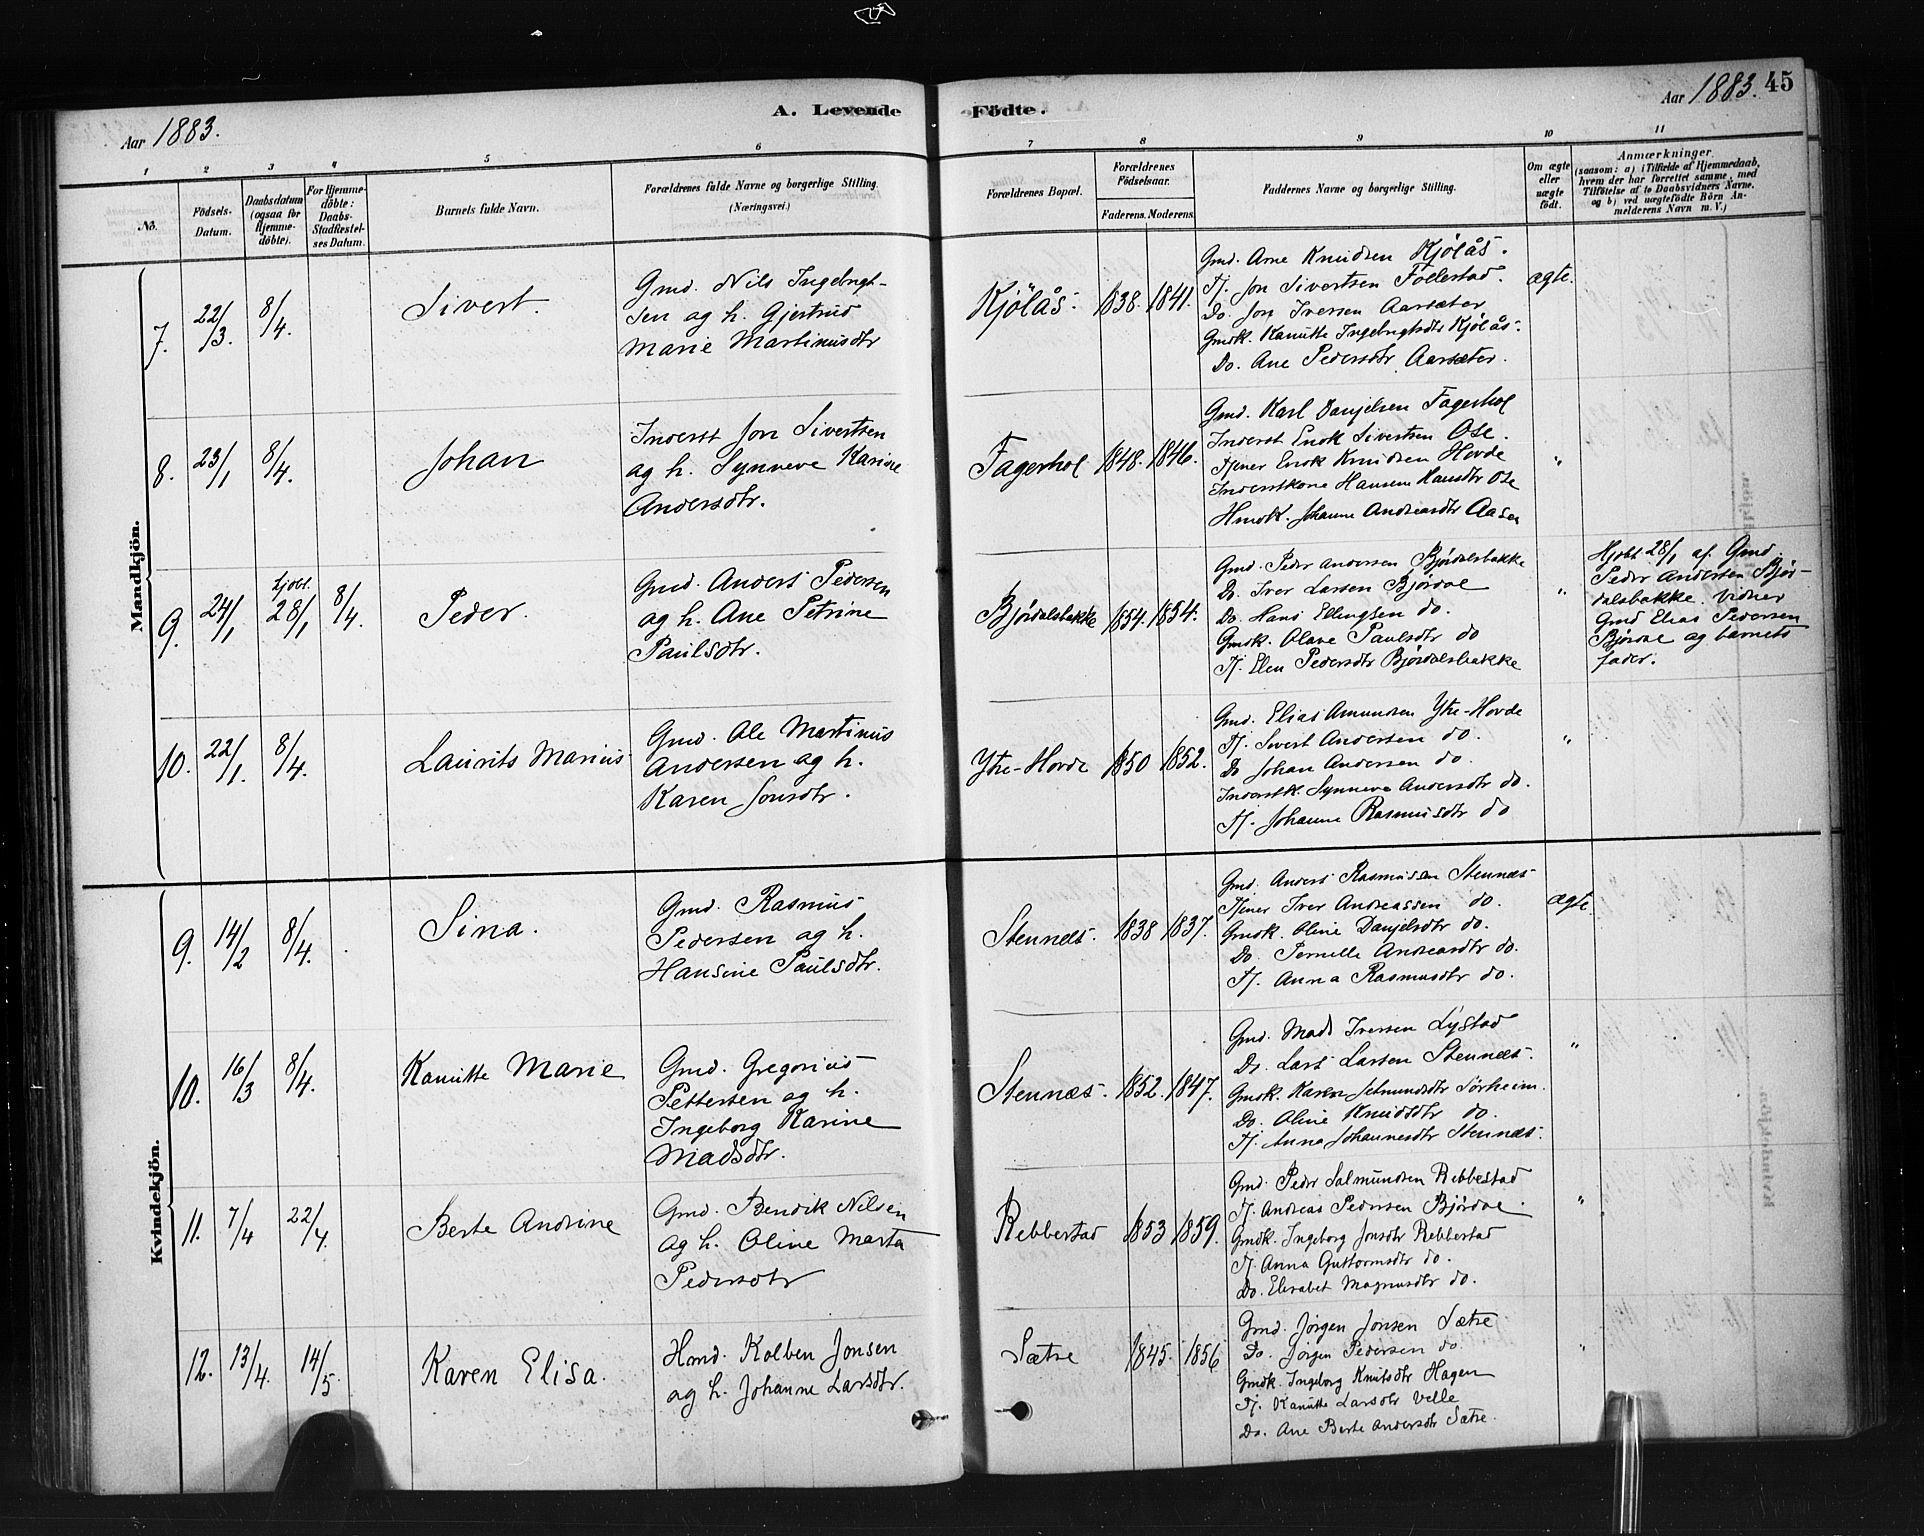 A. Levende Födte.
Aar 1883.
Aar 1883. 45
1 2 3 4 5 6 7 8 9 10 11
No.
Födsels-Datum.
Daabsdatum (ogsaa for Hjemmedöbte).
For Hjemmedöbte: Daabs-Stadfæstelses Datum.
Barnets fulde Navn.
Forældrenes fulde Navne og borgerlige Stilling. (Næringsvei.)
Forældrenes Bopæl.
Forældrenes Födselsaar.
Faderens. Moderens.
Faddernes Navne og borgerlige Stilling.
Om ægte eller uægte födt.
Anmærkninger.
(saasom: a) i Tilfælde af Hjemmedaab, hvem der har forrettet samme, med Tilföielse af to Daabsvidners Navne, og b) ved uægtefödte Börn Anmelderens Navn m. V.)
Mandkjön.
7. 22/3. 8/4. Sivert.
Gmd. Nils Ingebrigt-
sen og h. Gjertrud
Marie Martinusdtr
Kjölås. 1838. 1841.
Gmd. Arne Knudsen Kjölås.
Tj. Jon Sivertsen Follestad.
Do. Jon Iversen Aarsæter
Gmdk. Kanutte Ingebrigtsdtr Kjölås.
Do. Ane Pedersdtr Aarsæter.
ægte.
8. 23/1 8/4. Johan
Inderst Jon Sivertsen
og h. Synneve Karine
Andersdtr.
Fagerhol 1848. 1846.
Gmd. Karl Danjelsen Fagerhol
Inderst Enok Sivertsen Ose.
Tjener Enok Knudsen Hovde
Inderstkone Hansine Hansdtr Ose
Hmdk. Johanne Andreasdtr Aasen
"
9. 24/1 hjdbt. 28/1 8/4. Peder.
Gmd. Anders Pedersen
og h. Ane Petrine
Paulsdtr.
Bjørdalsbakke 1854. 1854.
Gmd. Peder Andersen Bjørdalsbakke
Do. Iver Larsen Bjørdal
Do. Hans Ellingsen do.
Gmdk. Olave Paulsdtr do
Tj. Elen Pedersdtr Bjørdalsbakke
"
Hjdbt 28/1 af Gmd.
Peder Andersen Bjør-
dalsbakke. Vidner
Gmd Elias Pedersen
Bjørdal og barnets
fader.
10. 22/1. 8/4. Laurits Marius
Gmd. Ole Martinus
Andersen og h.
Karen Jonsdtr.
Ytre-Hovde 1850 1852.
Gmd. Elias Amundsen Ytre-Hovde
Tj. Sivert Andersen do.
Do Johan Andersen do.
Inderstk. Synneve Andersdtr do.
Tj. Johanne Rasmusdtr do
"
Kvindekjön.
9. 14/2 8/4. Sina.
Gmd. Rasmus
Pedersen og h.
Hansine Paulsdtr.
Stennes. 1838 1837.
Gmd. Anders Rasmussen Stennæs
Tjener Iver Andreassen do.
Gmdk. Oline Danjelsdtr do.
Do. Pernille Andreasdtr do.
Tj. Anna Rasmusdtr do.
ægte.
10. 16/3 8/4. Kanutte Marie
Gmd. Gregorius
Pettersen og h.
Ingeborg Karine
Madsdtr.
Stennæs. 1852. 1847.
Gmd. Mads Iversen Lystad
Do. Lars Larsen Stennæs.
Gmdk. Karen Salmundsdtr Sørheim.
Do. Oline Knudsdtr do.
Tj. Anna Johannesdtr Stennæs.
"
11. 7/4 22/4. Berte Andrine
Gmd. Bendik Nilsen
og h. Oline Marta
Pedersdtr
Rebbestad 1853 1859.
Gmd. Peder Salmundsen Rebbestad
Tj. Andreas Pedersen Bjørdal.
Gmdk. Ingeborg Jonsdtr Rebbestad
Tj. Anna Guttormsdtr do.
Do. Elisabet Magnusdtr do.
"
12. 13/4. 14/5. Karen Elisa.
Hmd. Kolben Jonsen
og h. Johanne Larsdtr.
Sætre 1845. 1856
Gmd. Jørgen Jonsen Sætre
Do. Jørgen Pedersen do
Gmdk. Ingeborg Knutsdtr Hagen
Tj. Kanutte Larsdtr Velle
Do. Ane Berte Andersdtr Sætre.
"